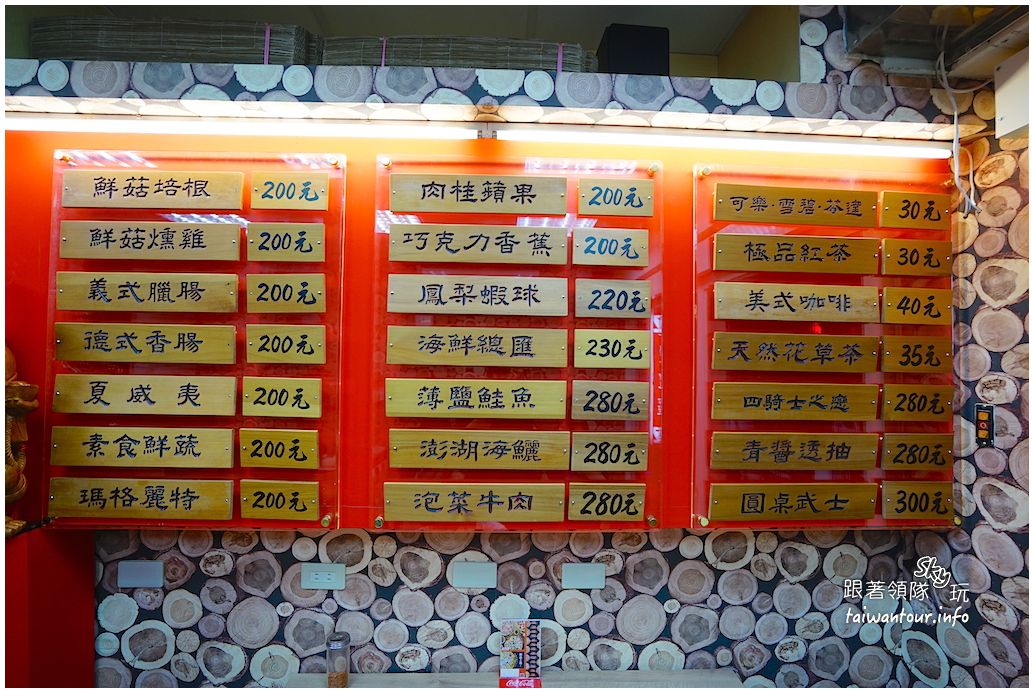 鮮菇培根 200元
鮮菇燻雞 200元
義式臘腸 200元
德式香腸 200元
夏威夷 200元
素食鮮蔬 200元
瑪格麗特 200元
肉桂蘋果 200元
巧克力香蕉 200元
鳳梨蝦球 220元
海鮮總匯 230元
薄鹽鮭魚 280元
澎湖海鱺 280元
泡菜牛肉 280元
可樂·雪碧·芬達 30元
極品紅茶 30元
美式咖啡 40元
天然花草茶 35元
四騎士之戀 280元
青醬透抽 280元
圓桌武士 300元
跟著領隊Sky玩
taiwantour.info
Coca-Cola